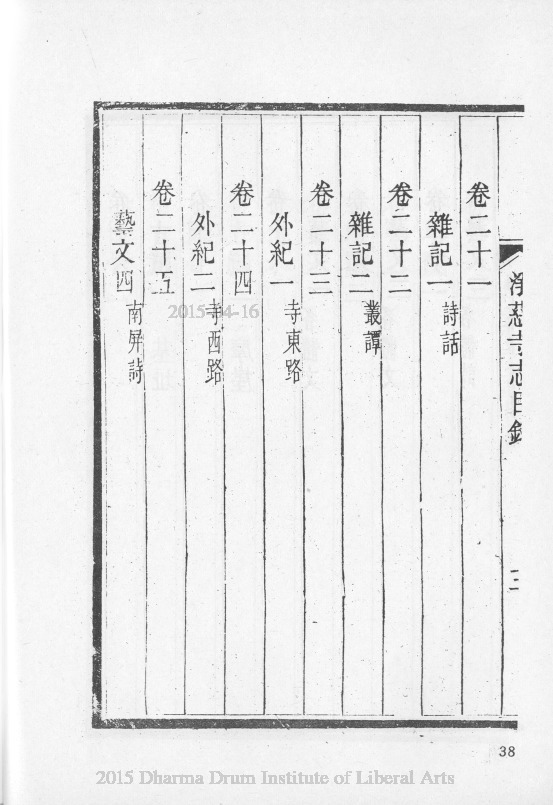 淨慈寺志目錄
三
卷二十一
雜記一 詩話
卷二十二
雜記二 叢譚
卷二十三
外紀一 寺東路
卷二十四
外紀二 寺西路
卷二十五
藝文四 南屏詩
2015-04-16
38
2015 Dharma Drum Institute of Liberal Arts